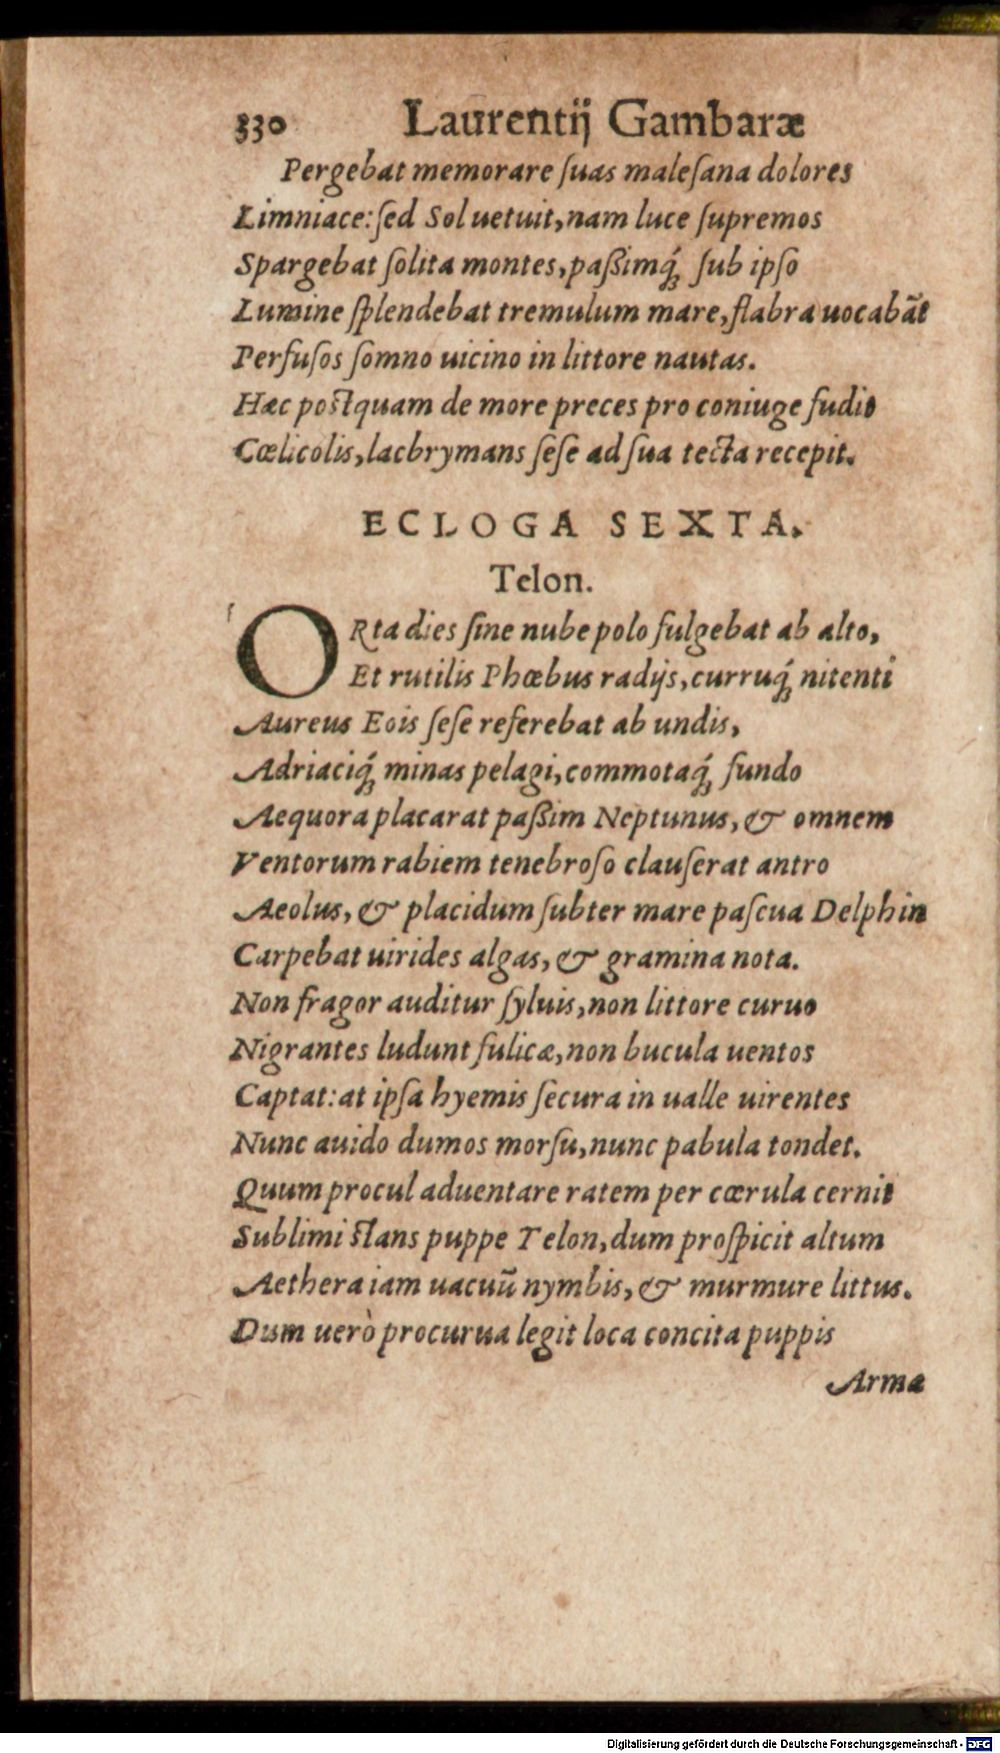 330 Laurentij Gambaræ
Pergebat memorare ſuas maleſana dolores
Limniace: ſed Sol uetuit, nam luce ſupremos
Spargebat ſolita montes, paßimq́; ſub ipſo
Lumine ſplendebat tremulum mare, flabra uocabãt
Perfuſos ſomno uicino in littore nautas.
Hæc poſtquam de more preces pro coniuge fudit
Cœlicolis, lachrymans ſeſe ad ſua tecta recepit.
ECLOGA SEXTA.
Telon.
ORta dies ſine nube polo fulgebat ab alto,
Et rutilis Phœbus radijs, curruq́; nitenti
Aureus Eois ſeſe referebat ab undis,
Adriaciq́; minas pelagi, commotaq́; fundo
Aequora placarat paßim Neptunus, & omnem
Ventorum rabiem tenebroſo clauſerat antro
Aeolus, & placidum ſubter mare paſcua Delphin
Carpebat uirides algas, & gramina nota.
Non fragor auditur ſyluis, non littore curuo
Nigrantes ludunt fulicæ, non bucula uentos
Captat: at ipſa hyemis ſecura in ualle uirentes
Nunc auido dumos morſu, nunc pabula tondet.
Quum procul aduentare ratem per cœrula cernit
Sublimi ſtans puppe Telon, dum proſpicit altum
Aethera iam uacuũ nymbis, & murmure littus.
Dum uerò procurua legit loca concita puppis
Arma
Digitalisierung gefördert durch die Deutsche Forschungsgemeinschaft - DFG